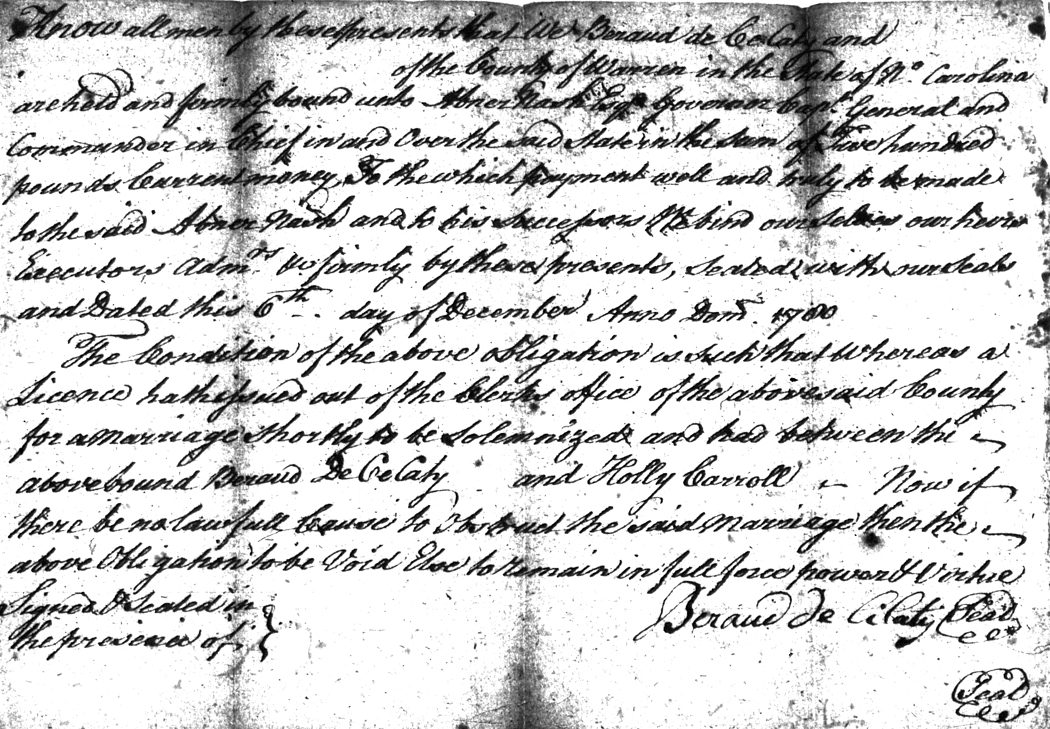 Know all men by these presents that We Beraud de CeCaty and
of the County of Warren in the State of No Carolina
are held and firmly bound unto Abner Nash Esqr Governor Capt General and
Commander in Chief in and Over the said State in the Sum of Five hundred
pounds Current money, To the which payment well and truly to be made
to the said Abner Nash and to his Successors We bind ourselves our heirs
Executors Admrs &c firmly by these presents, Sealed with our Seals
and Dated this 6th day of December Anno Dom 1780
The Condition of the above obligation is such that Whereas a
Licence hath issued out of the Clerks office of the abovesaid County
for a marriage shortly to be Solemnized and had between the
abovebound Beraud De CeCaty and Holly Carroll Now if
there be no lawfull Cause to Obstruct the said marriage then the
above Obligation to be Void Else to remain in full force power & Virtue
Signed & Sealed in
the presence of
Beraud de CeCaty Seal
Seal